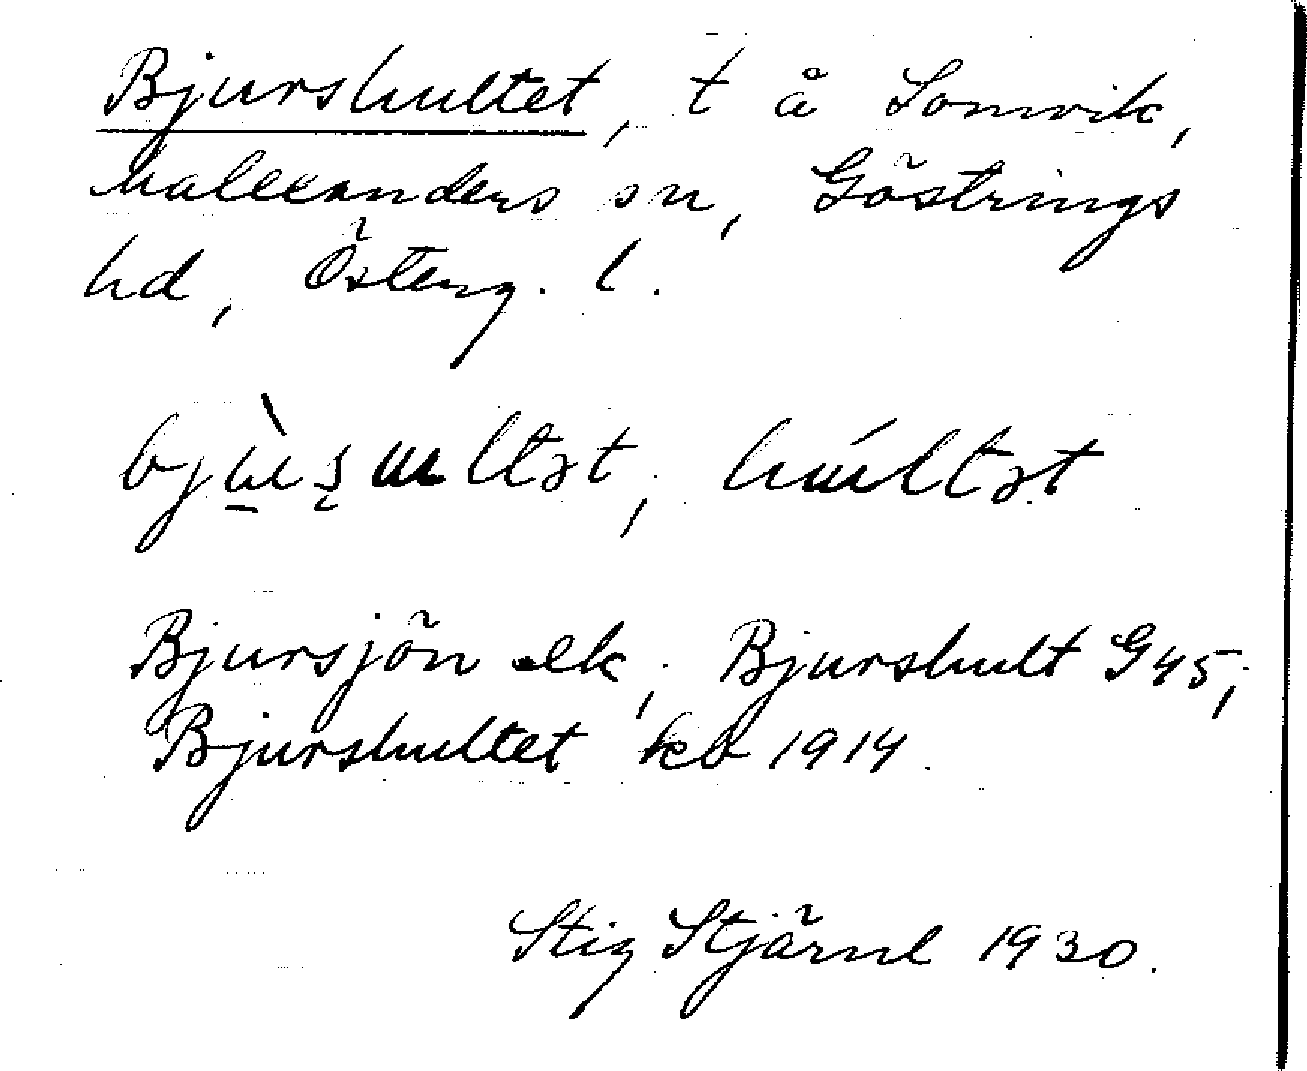 Bjurshultet, t å Somvik,
Malexanders sn, Göstrings
hd, Österg. l.
bjɯ̀ʂɯltət, hɯ́ltət
Bjursjön ek; Bjurshult G45;
Bjurshultet kb 1914.
Stig Stjärnl 1930.